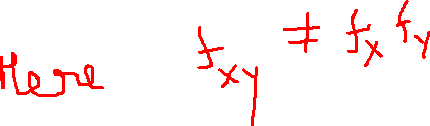 Here f_{xy} ≠ f_x f_y